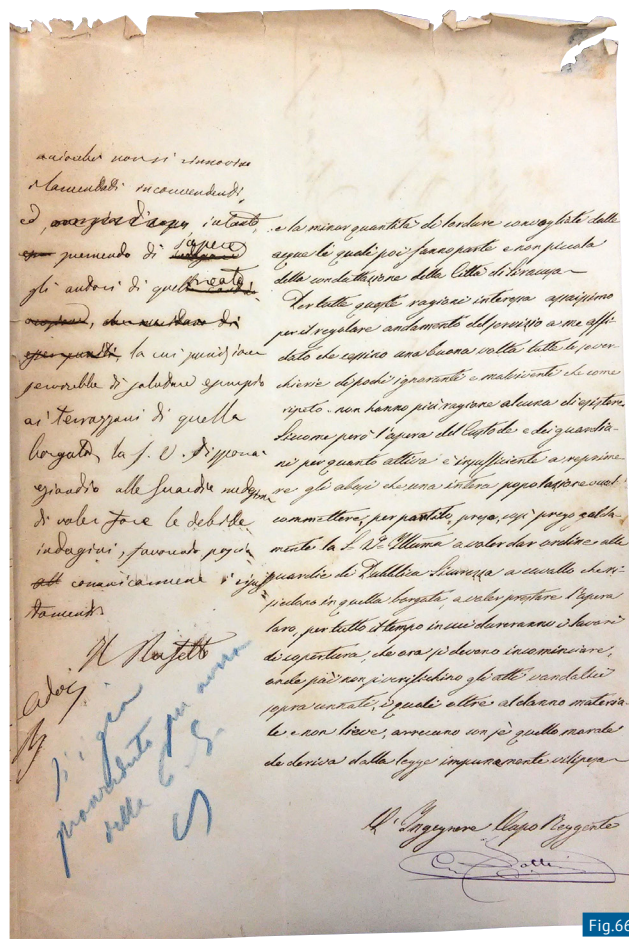 acciocchè non si rinnovino
i lamentati inconvenienti,
ed, intanto,
premendo di sapere
gli autori di quel reato
la cui punizione
servirebbe di salutare esempio
ai terrazzani di quella
borgata, la S. V. disporrà
eziandio alle Guardie medesime
di voler fare le debite
indagini, favorendo poscia
comunicarmene i risul
tamenti
Il Prefetto
Si è già
provveduto per mezzo
della P. S.
e la minor quantità di lordure convogliate dalle
acque le quali poi fanno parte e non piccola
della condottazione della Città di Siracusa
Per tutte queste ragioni interessa assaissimo
per il regolare andamento del servizio a me affi
dato che cessino una buona volta tutte le sover
chierie di pochi ignoranti e malviventi che come
ripeto non hanno più ragione alcuna di esistere.
Siccome però l'opera del Custode e dei guardia
ni per quanto attiva è insufficiente a reprime
re gli abusi che una intera popolazione vuol
commettere, per partito preso, così prego calda
mente la S. V. Illma a voler dar ordine alle
guardie di Pubblica Sicurezza a cavallo che ri
siedono in quella borgata, a voler prestare l'opera
loro, per tutto il tempo in cui dureranno i lavori
di copertura, che ora si devono incominciare,
onde più non si verifichino gli atti vandalici
sopra cennati, i quali oltre al danno materia
le e non lieve, arrecano con sè quello morale
che deriva dalla legge impunemente vilipesa
L'Ingegnere Capo Reggente
Fig.66